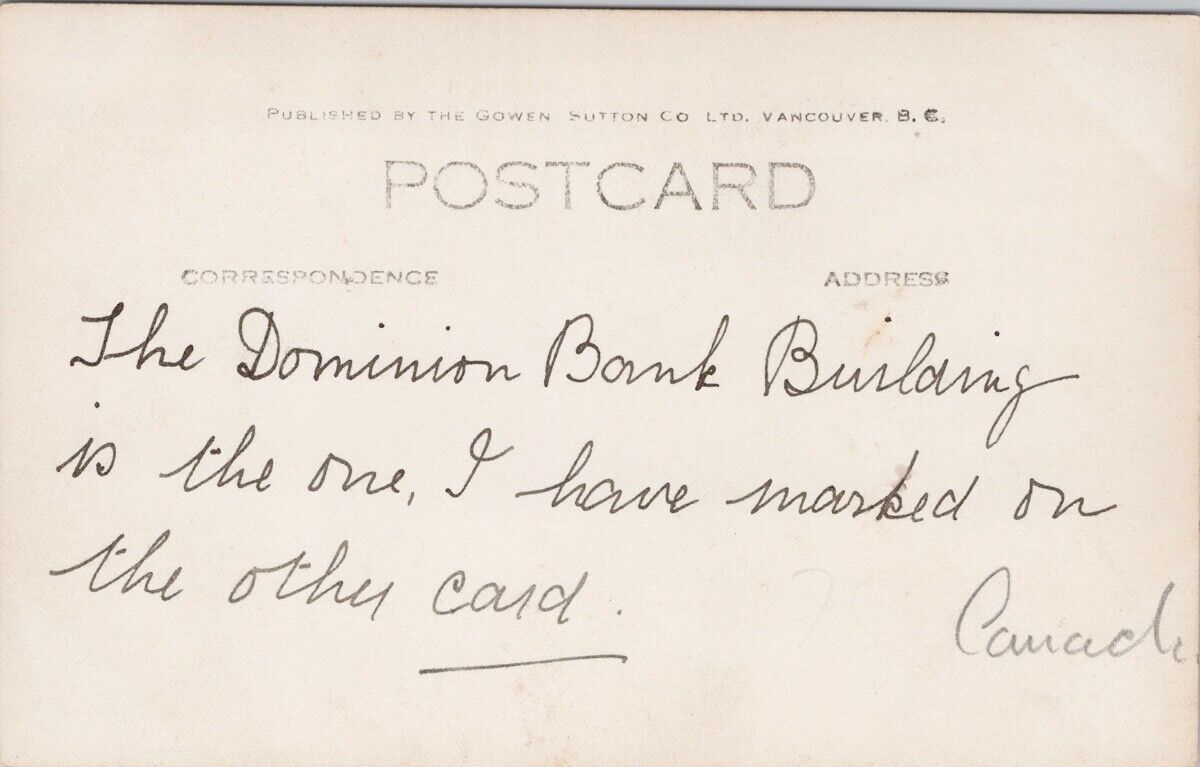 PUBLISHED BY THE GOWEN SUTTON CO LTD. VANCOUVER. B. C.
POSTCARD
CORRESPONDENCE ADDRESS
The Dominion Bank Building
is the one, I have marked on
the other card.
Canada